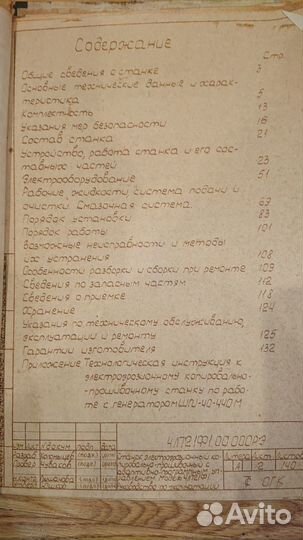 Содержание
Стр.
Общие сведения о станке 3
Основные технические данные и харак-
теристика 5
Комплектность 13
Указания мер безопасности 16
Состав станка 21
Устройство, работа станка и его сос-
тавных частей 23
Электрооборудование 51
Рабочие жидкости система подачи и
очистки. Смазочная система. 69
Порядок установки 83
Порядок работы 101
Возможные неисправности и методы
их устранения 108
Особенности разборки и сборки при ремонте 109
Сведения по запасным частям 112
Сведения о приемке 118
Хранение 124
Указания по техническому обслуживанию,
эксплуатации и ремонту 125
Гарантии изготовителя 132
Приложение Технологическая инструкция к
электроэрозионному копировально-
прошивочному станку по рабо-
те с генератором ШГИ-40-440М
подп. дата
Разраб
Станок электроэрозионный ко-
пировально-прошивочный с
Лист
2 140
ОГК
Avito